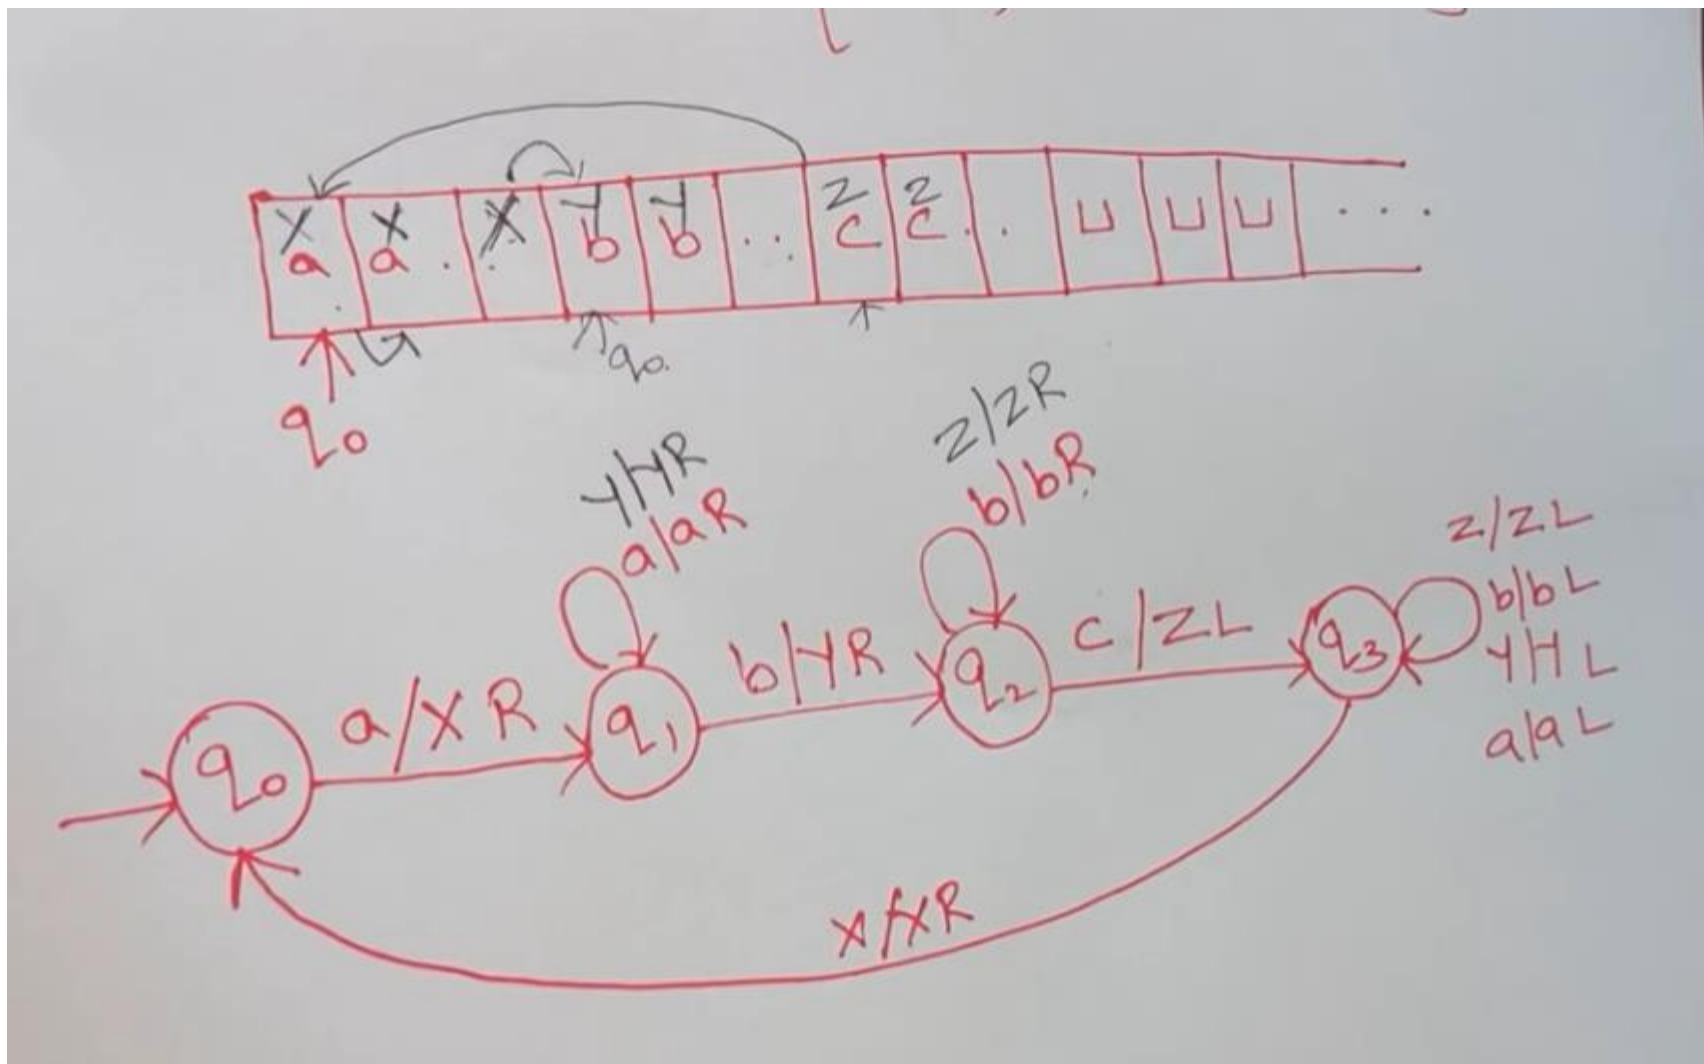 X X X Y Y Z Z
a a . . b b .. c c . . ⊔ ⊔ ⊔ ....
q₀ q₀
Y/YR
a/aR
Z/ZR
b/bR
Z/ZL
b/bL
Y/YL
a/aL
q₀ a/XR q₁ b/YR q₂ c/ZL q₃
X/XR